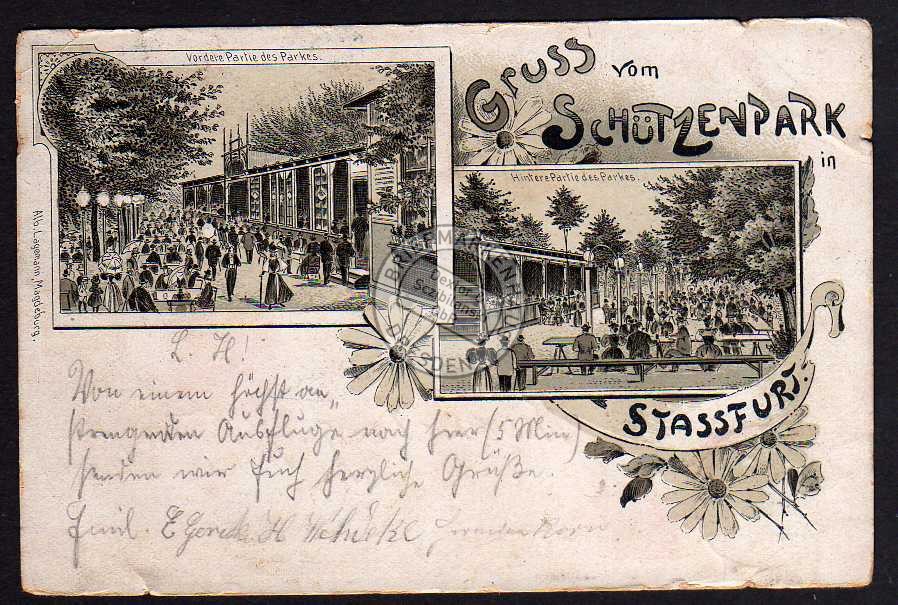 Vordere Partie des Parkes.
Gruss vom
Schützenpark
in
Hintere Partie des Parkes.
Stassfurt.
Alb. Lagemann, Magdeburg.
L. H!
Von einem höchst an„
strengenden Ausfluge nach hier (5 Min)
senden wir Euch herzliche Grüße.
Emil. E H
BRIEFMARKEN
DRESDEN